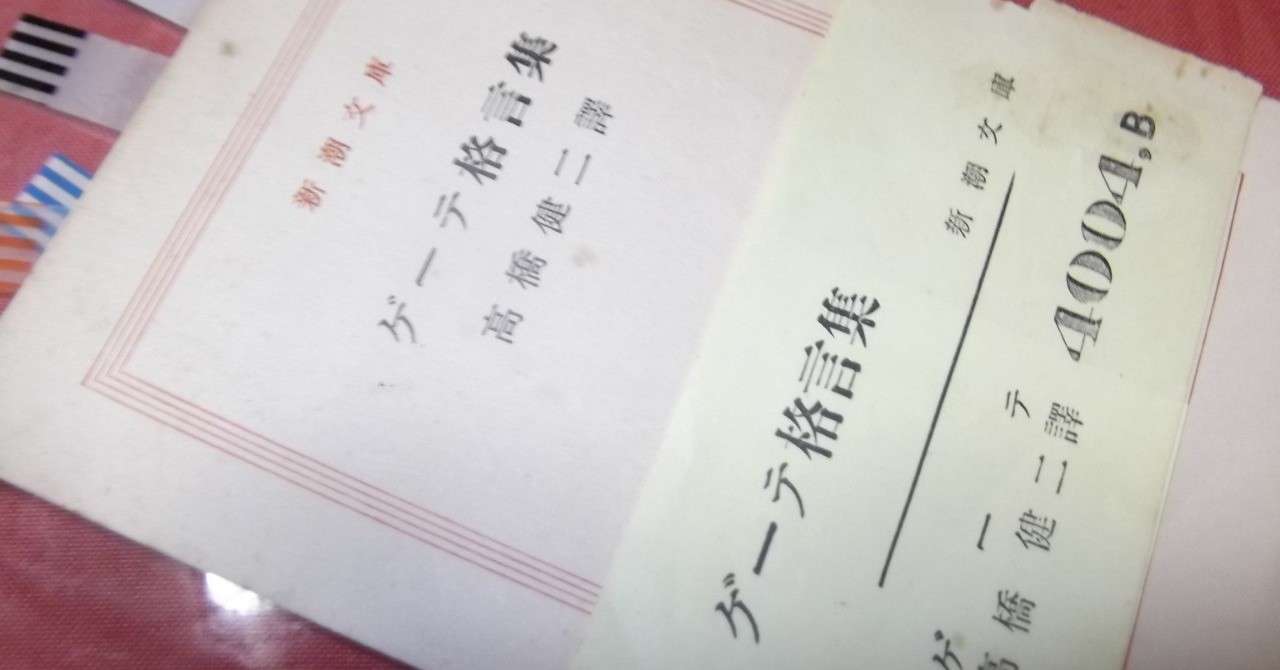 新潮文庫
ゲーテ格言集
高橋健二譯
ゲーテ格言集
新潮文庫
ゲーテ
高橋健二譯
4004,B